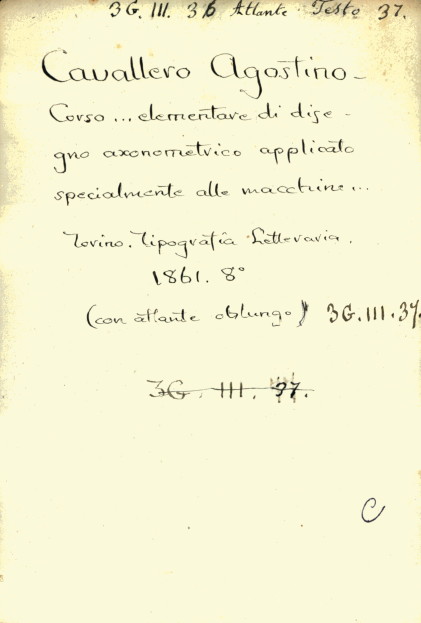 3G. III. 36 Atlante. Testo 37.
Cavallero Agostino -
Corso ... elementare di dise -
gno axonometrico applicato
specialmente alle macchine ...
Torino. Tipografia Letteraria.
1861. 8°
(con atlante oblungo) 3G.III.37.
3G. III. 37.
C